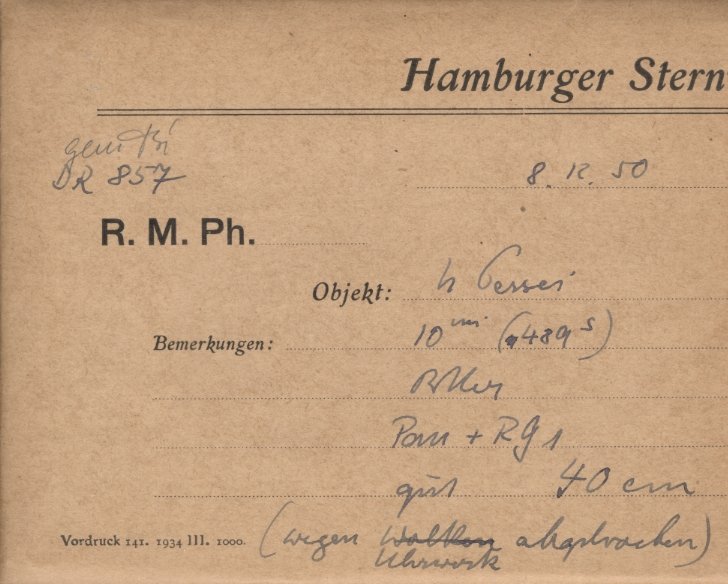 Hamburger Stern
DR 857
8. 12. 50
R. M. Ph.
Objekt: h Persei
Bemerkungen: 10 min (489 s)
Pan + RG 1
gut 40 cm
(wegen Wolken abgebrochen)
Uhrwerk
Vordruck 141. 1934 III. 1000.